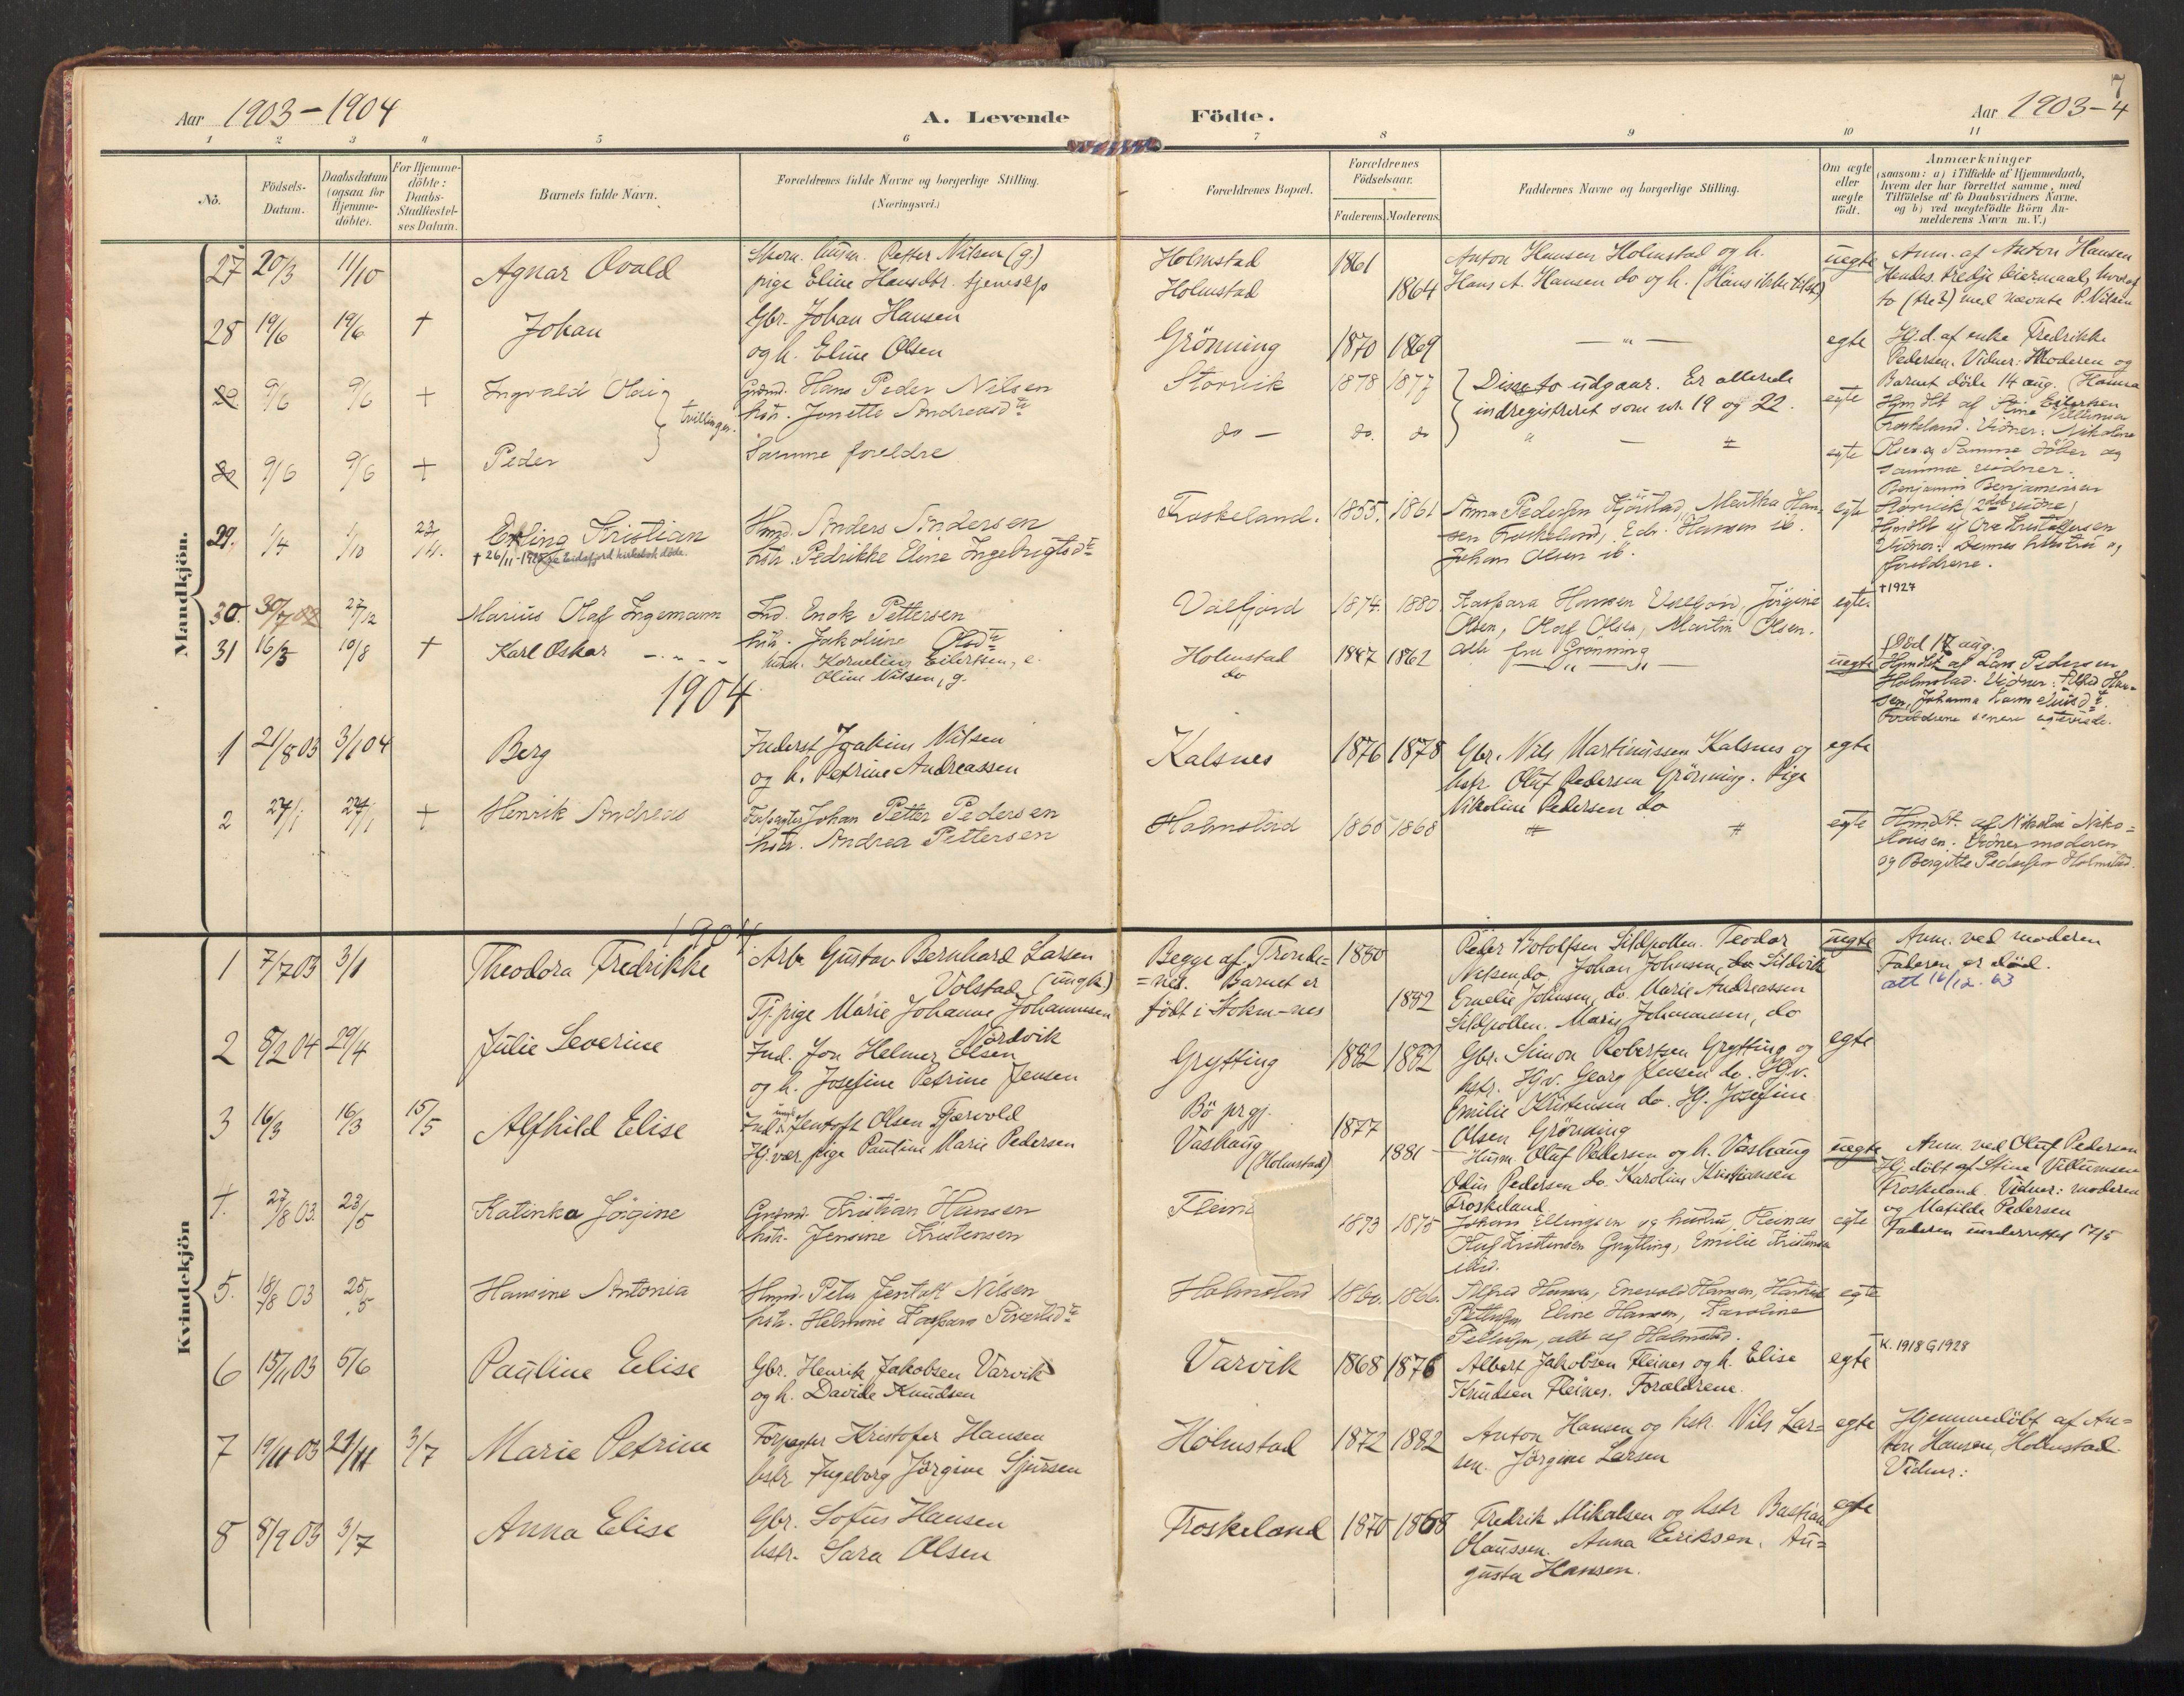 7
Aar 1903-1904
A. Levende Födte.
Aar 1903-4
1 2 3 4 5 6 7 8 9 10 11
No.
Födsels-Datum.
Daabsdatum (ogsaa for Hjemme-döbte).
For Hjemme-döbte: Daabs-Stadfæstel-ses Datum.
Barnets fulde Navn.
Forældrenes fulde Navne og borgerlige Stilling.
(Næringsvei.)
Forældrenes Bopæl.
Forældrenes Födselsaar.
Faderens. Moderens.
Faddernes Navne og borgerlige Stilling.
Om ægte eller uægte födt.
Anmærkninger
(saasom: a) i Tilfælde af Hjemmedaab,
hvem der har forrettet samme, med
Tilföielse af to Daabsvidners Navne.
og b) ved uægtefödte Börn An-
melderens Navn m. V.)
Mandkjön.
27 20/3 11/10 Agnar Ovald
Petter Nilsen (g.)
pige Eline Hansdtr.
Holmstad
Holmstad
1861
1864
Anton Hansen Holmstad og h.
Hans A. Hansen do og h.
uegte
Anm. af Anton Hansen
med nævnte P. Nilsen
28 19/6 19/6 † Johan
Gbr. Johan Hansen
og h. Eline Olsen
Grönning 1870 1869 — " — egte
Hj.d. af enke Fredrikke
Pedersen. Vidner: Moderen og
Barnet döde 14 aug.
9/6 9/6 + Ingvald Olai
tvillinger.
Hans Peder Nilsen
hstr. Jonette Andreasdtr
Storvik 1878 1877
Disse to udgaar. Er allerede
indregistreret som nr 19 og 22.
egte
9/6 9/6 + Peder
Samme foreldre
do — do. do
egte
Olsen og Samme döber og
samme vidner.
29. 1/4 1/10 Erling Kristian
Anders Andersen
hstr. Pedrikke Eline Ingebrigtsdtr
Froskeland. 1855. 1861
Anna Pedersen Kjörstad, Martha Han-
sen Froskeland, Edv. Hansen ib.
Johan Olsen ib.
egte
Benjamin Benjaminsen
foreldrene.
30. 30/7 02 27/12 Marius Olaf Ingemann
Ind. Enok Pettersen
hstr. Jakobine Olsdtr
Valfjord 1874. 1880
Kaspara Hansen Valfjord, Jörgine
Olsen, Olaf Olsen, Martin Olsen.
alle fra Grönning
egte.
†1927
31 16/3 10/8 † Karl Oskar
Kornelius Eilertsen, e.
Oline Nilsen, g.
Holmstad
do
1847 1862
uegte
Död 17 aug.
Hjmdbt af Lars Pedersen
Holmstad. Vidner:
1904
1 21/8 03 3/1 04 Berg
Inderst Joakim Nilsen
og h. Petrine Andreassen
Kalsnes 1876 1878
Gbr. Nils Martinussen Kalsnes og
hstr. Oluf Pedersen Grönning. Pige
Nikoline Pedersen do
egte
2 27/1 27/1 + Henrik Andreas
Forpagter Johan Petter Pedersen
hstr. Andrea Pettersen
Holmstad 1865 1868
egte
Vidner moderen
og Bergitte Pedersen Holmstad.
Kvindekjön
1904
1 7/7 03 3/1 Theodora Fredrikke
Arb. Gustav Bernhard Larsen
Volstad (ungk)
Tj. pige Marie Johanne Johannesen
Nordvik
Begge af Tronde-
=nes. Barnet er
födt i Stokm-nes
1880
1882
Peder Botolfsen Sildpollen. Teodor
Nilsen do, Johan Johnsen, do Sildvik
Emelie Johnsen, do. Marie Andreassen
Sildpollen. Marie Johannesen, do
uegte
Anm. ved moderen
Faderen er död.
att 16/12. 63
2 8/2 04 29/4 Julie Severine
Ind. Jon Helmer Olsen
og h. Josefine Petrine Jensen
Grytting 1882 1882
Gbr. Simon Robertsen Grytting og
hstr. Hjv. Georg Jensen do. Hjv.
Emilie Kristensen do. Hj. Josefine
Olsen Grönning
egte
3 16/3 16/3 15/5 Alfhild Elise
Jentoft Olsen Fjærvold
Hj. vær. pige Pauline Marie Pedersen
Bö prgj.
Vashaug
(Holmstad)
1877
1881
Husm. Oluf Pedersen og h. Vashaug
Odin Pedersen do. Karoline Kristiansen
Froskeland
uegte
Anm. ved Oluf Pedersen
Hj. döbt af Stine Villumsen
Froskeland. Vidner: moderen
og Mafilde Pedersen
Faderen underrettet 17/5
4. 27/8 03. 23/5 Katinka Jörgine
Kristian Hansen
hstr. Jensine Kristensen
1873 1875
Johan Ellingsen og hustru, Fleines
Kristensen Grytting, Emilie Kristensen
ibid.
egte
5. 18/8 03 25/5 Hansine Antonia
Peter Jentoft Nilsen
hstr. Helmine Kaspara Sivertsdtr
Holmstad 1860. 1866.
Alfred Hansen, Enevold Hansen,
Pettersen, Eline Hansen, Karoline
Pettersen, alle af Holmstad.
egte
6 15/11 03 5/6 Pauline Elise
Gbr. Henrik Jakobsen Varvik
og h. Davide Knudsen
Varvik 1868 1876
Albert Jakobsen Fleines og h. Elise
Knudsen Fleines. Forældrene.
egte
K. 1918 G 1928
7 19/11 03 29/11 3/7 Marie Petrine
Forpagter Kristofer Hansen
hstr Ingeborg Jörgine Sjursen
Holmstad 1872 1882
Anton Hansen og hstr. Nils Lar=
sen. Jörgine Larsen
egte
Hjemmedöbt af An=
ton Hansen, Holmstad.
Vidner:
8 8/9 03 3/7 Anna Elise
Gbr. Sofus Hansen
hstr. Sara Olsen
Froskeland 1870 1868
Fredrik Mikalsen og hstr Bastian
Olaussen. Anna Eriksen. Au=
gusta Hansen.
egte